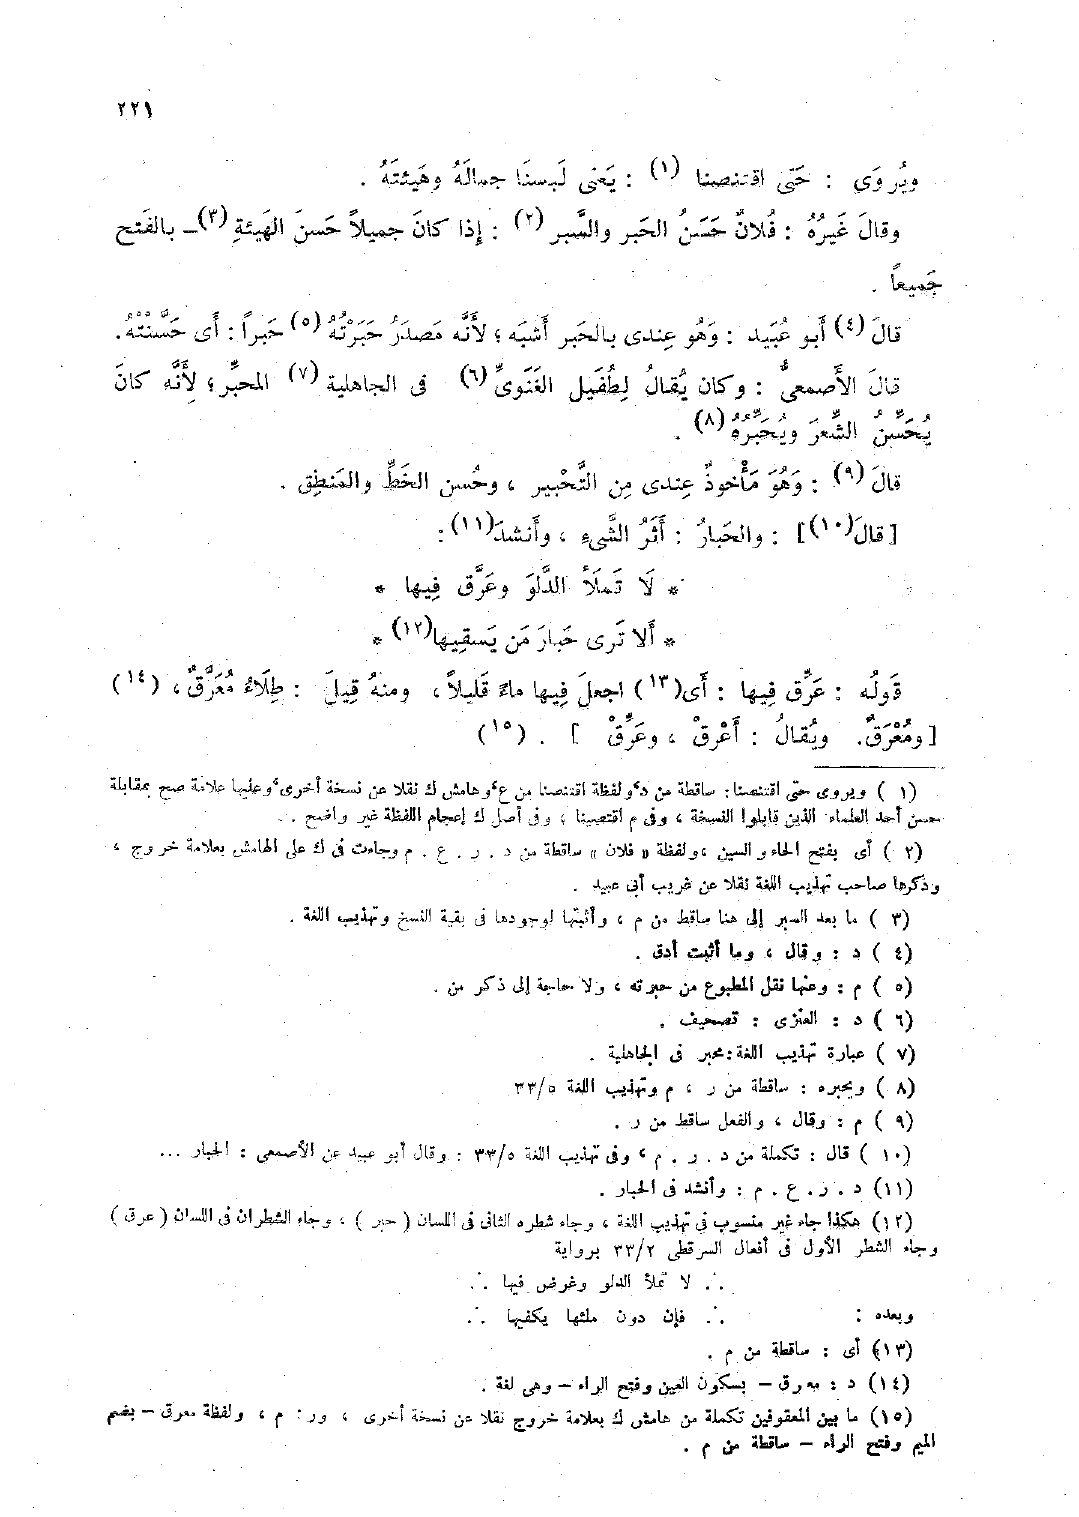 ٢٢١
ويُروَى : حَتّى اقتنصنا (١) : يَعنى لَبسنَا جمالَهُ وهَيئتَهُ .
وقالَ غَيرُهُ : فُلانٌ حَسَنُ الحَبر والسَّبر (٢) : إذا كانَ جميلاً حَسنَ الهَيئةِ (٣) ــ بالفَتح
جَميعاً .
قالَ (٤) أَبو عُبَيد : وَهُو عِندى بالحَبر أَشبَه ؛ لأَنَّه مَصدَرُ حَبَرْتُهُ (٥) حَبراً : أَى حَسَّنْتُهُ.
قالَ الأَصمعىُّ : وكان يُقالُ لِطُفَيل الغَنَوىِّ (٦) فى الجاهلية (٧) المحبِّر ؛ لأِنَّه كانَ
يُحَسِّنُ الشِّعرَ ويُحَبِّرُهُ (٨) .
قالَ (٩) : وَهُوَ مَأْخوذٌ عِندى مِن التَّحْبير ، وحُسن الخَطِّ والمَنطِق .
[ قالَ (١٠) ] : والحَبارُ : أَثَرُ الشَّىءِ ، وأَنشدَ (١١) :
* لَا تَملَأ الدَّلوَ وعَرَّق فِيها *
* أَلا تَرى حَبارَ مَن يَسقِيها (١٢) *
قَولُه : عَرِّق فِيها : أَى (١٣) اجعلَ فِيها ماءً قَليلاً ، ومنهُ قِيلَ : طِلَاءُ مُعَرَّقٌ ، (١٤)
[ ومُعْرَقٌ. ويُقالُ : أَعْرقْ ، وعَرِّقْ ] . (١٥)
(١) ويروى حتى اقتنصنا : ساقطة من د ، ولفظة اقتنصنا من ع ، وهامش ك نقلا عن نسخة أخرى ، وعليها علامة صح بمقابلة
حسن أحد العلماء الذين قابلوا النسخة ، وفى م اقتصينا ، وفى أصل ك إعجام اللفظة غير واضح .
(٢) أى بفتح الحاء والسين ، ولفظة « فلان » ساقطة من د . ر . ع . م وجاءت فى ك على الهامش بعلامة خروج ،
وذكرها صاحب تهذيب اللغة نقلا عن غريب أبى عبيد .
(٣) ما بعد السبر إلى هنا ساقط من م ، وأثبتها لوجودها فى بقية النسخ وتهذيب اللغة .
(٤) د : وقال ، وما أثبت أدق .
(٥) م : وعنها نقل المطبوع من حبرته ، ولا حاجة إلى ذكر من .
(٦) د : العنزى : تصحيف .
(٧) عبارة تهذيب اللغة : محبر فى الجاهلية .
(٨) ويحبره : ساقطة من ر ، م وتهذيب اللغة ٣٣/٥
(٩) م : وقال ، والفعل ساقط من ر .
(١٠) قال : تكملة من د . ر . م ، وفى تهذيب اللغة ٣٣/٥ : وقال أبو عبيد عن الأصمعى : الحبار ...
(١١) د . ر . ع . م : وأنشد فى الحبار .
(١٢) هكذا جاء غير منسوب فى تهذيب اللغة ، وجاء شطره الثانى فى اللسان ( حبر ) ، وجاء الشطران فى اللسان ( عرق )
وجاء الشطر الأول فى أفعال السرقطى ٣٣/٢ برواية
∴ لا تملأ الدلو وغرض فيها ∴
وبعده : ∴ فإن دون ملئها يكفيها ∴
(١٣) أى : ساقطة من م .
(١٤) د : معرق – بسكون العين وفتح الراء – وهى لغة .
(١٥) ما بين المعقوفين تكملة من هامش ك بعلامة خروج نقلا عن نسخة أخرى ، ور : م ، ولفظة معرق – بضم
الميم وفتح الراء – ساقطة من م .